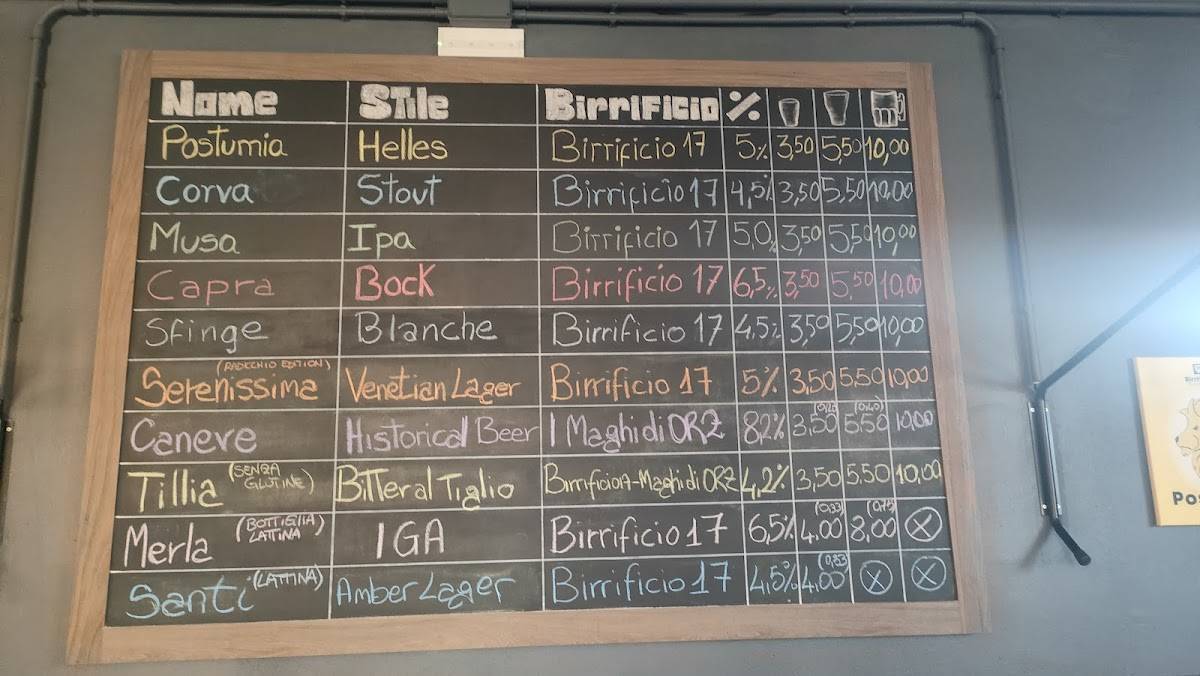 Nome Stile Birrificio %
Postumia Helles Birrificio 17 5% 3,50 5,50 10,00
Corva Stout Birrificio 17 4,5% 3,50 5,50 10,00
Musa Ipa Birrificio 17 5,0% 3,50 5,50 10,00
Capra Bock Birrificio 17 6,5% 3,50 5,50 10,00
Sfinge Blanche Birrificio 17 4,5% 3,50 5,50 10,00
Serenissima (RADICCHIO EDITION) Venetian Lager Birrificio 17 5% 3,50 5,50 10,00
Caneve Historical Beer I Maghi di ORZ 82% 3,50 (0,20) 5,50 (0,40) 10,00
Tillia (SENZA GLUTINE) Bitter al Tiglio Birrificio17-Maghi di ORZ 4,2% 3,50 5,50 10,00
Merla (BOTTIGLIA LATTINA) IGA Birrificio 17 6,5% 4,00 (0,33) 8,00 (0,75) X
Santi (LATTINA) Amber Lager Birrificio 17 4,5% 4,00 (0,33) X X
Pos